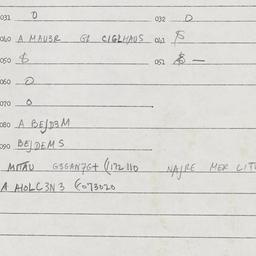 031 0 032 0
040 A MAU3R G2 CIGLHAUS 041 $
050 $ 051 $ —
060 0
070 0
080 A BEJD3M
090 BEJDEMS
MITAU G3GAN7G+ (172110 NAJRE MER
A HOLC3N3 (073020